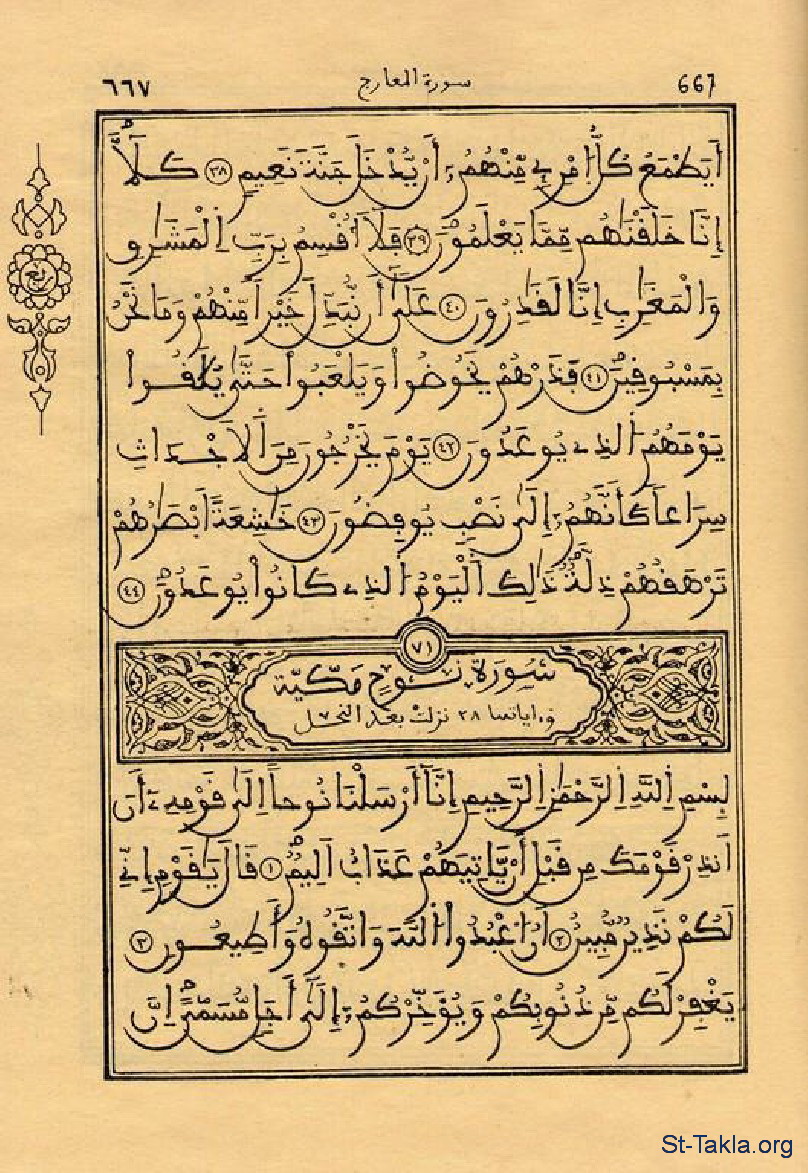 ٦٦٧ سورة المعارج 667
أَيَطْمَعُ كُلُّ اُمْرِےٕ مِّنْهُمُۥٓ أَنْ يُّدْخَلَ جَنَّةَ نَعِيمٍ ٣٨ كَلَّآ
إِنَّا خَلَقْنَٰهُم مِّمَّا يَعْلَمُونَ ٣٩ فَلَآ أُقْسِمُ بِرَبِّ اِ۬لْمَشَٰرِقِ
وَالْمَغَٰرِبِ إِنَّا لَقَٰدِرُونَ ٤٠ عَلَىٰٓ أَن نُّبَدِّلَ خَيْراً مِّنْهُمْ وَمَا نَحْنُ
بِمَسْبُوقِينَ ٤١ فَذَرْهُمْ يَخُوضُواْ وَيَلْعَبُواْ حَتَّىٰ يُلَٰقُواْ
يَوْمَهُمُ اُ۬لذِے يُوعَدُونَ ٤٢ يَوْمَ يَخْرُجُونَ مِنَ اَ۬لَاجْدَاثِ
سِرَاعاً كَأَنَّهُمُۥٓ إِلَىٰ نَصْبٍ يُوفِضُونَ ٤٣ خَٰشِعَةً اَبْصَٰرُهُمْ
تَرْهَقُهُمْ ذِلَّةٌ ذَٰلِكَ اَ۬لْيَوْمُ اُ۬لذِے كَانُواْ يُوعَدُونَ ٤٤
٧١
سُورَة نُوحٍ مَكِّيَّة
وءاياتها ٢٨ نزلت بعد النحل
بِسْمِ اِ۬للَّهِ اِ۬لرَّحْمَٰنِ اِ۬لرَّحِيمِ إِنَّآ أَرْسَلْنَا نُوحاً اِلَىٰ قَوْمِهِۦٓ أَنَ
اَنذِرْ قَوْمَكَ مِن قَبْلِ أَنْ يَّاتِيَهُمْ عَذَابٌ اَلِيمٌ ١ قَالَ يَٰقَوْمِ إِنِّے
لَكُمْ نَذِيرٌ مُّبِينٌ ٢ أَنُ اُ۟عْبُدُواْ اُ۬للَّهَ وَاتَّقُوهُ وَأَطِيعُونِ ٣
يَغْفِرْ لَكُم مِّن ذُنُوبِكُمْ وَيُوَ۬خِّرْكُمُۥٓ إِلَىٰٓ أَجَلٍ مُّسَمّىًۖ اِنَّ
ربع
St-Takla.org